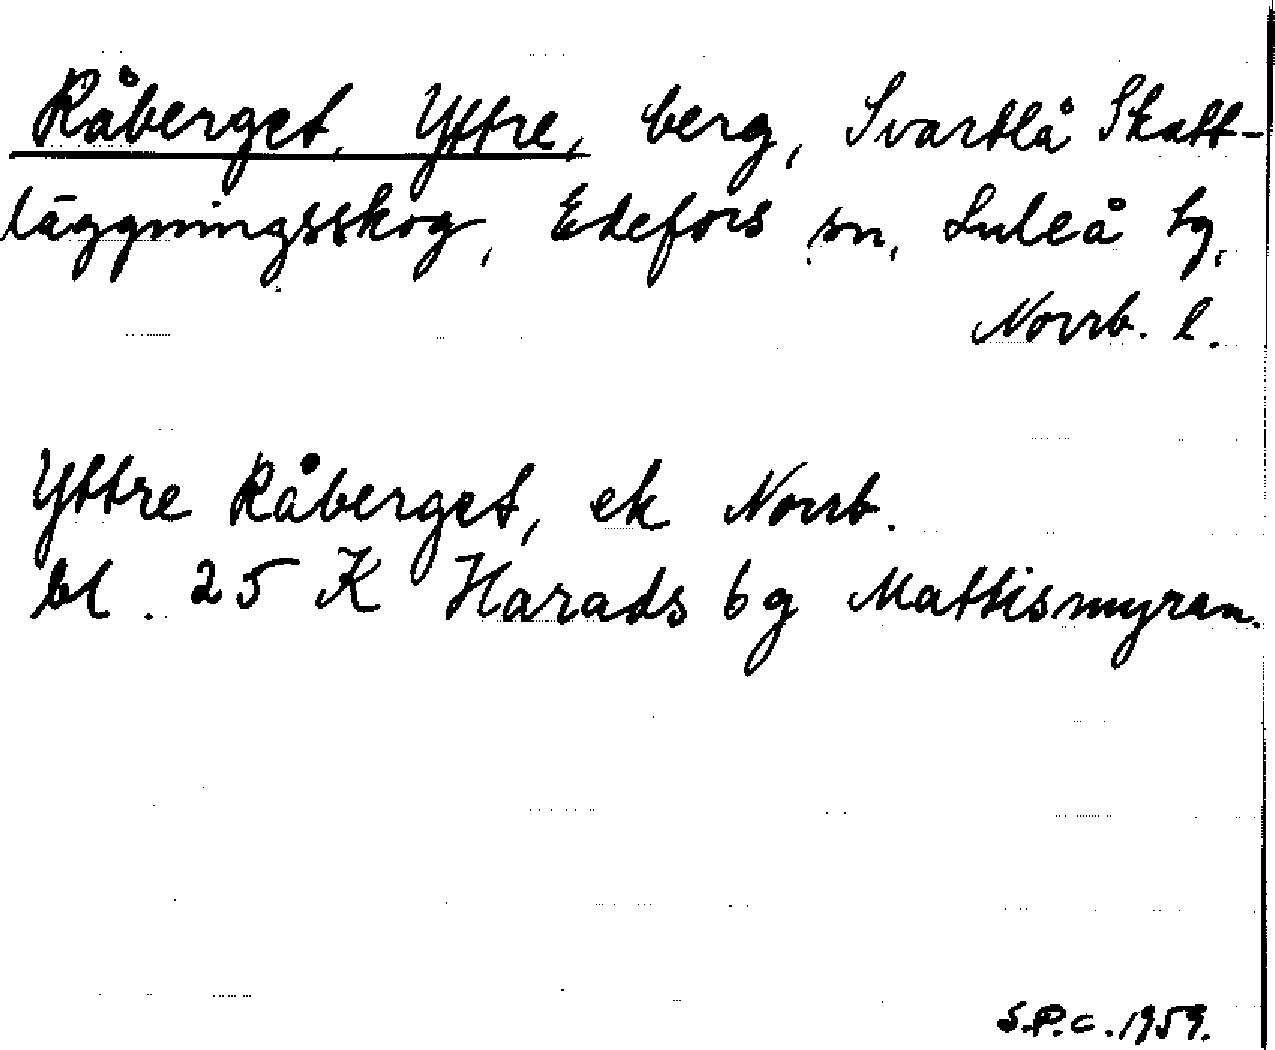 Råberget, Yttre, berg, Svartlå Skatt-
läggningsskog, Edefors sn, Luleå tg,
Norrb. l.
Yttre Råberget, ek Norrb.
bl. 25 K Harads 6g Mattismyran.
S.P.C. 1959.